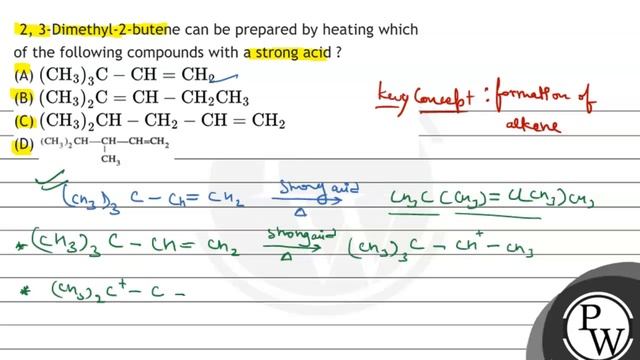 2, 3-Dimethyl-2-butene can be prepared by heating which
of the following compounds with a strong acid ?
(A) (CH₃)₃C − CH = CH₂
(B) (CH₃)₂C = CH − CH₂CH₃
(C) (CH₃)₂CH − CH₂ − CH = CH₂
(D) (CH₃)₂CH—CH—CH=CH₂
|
CH₃
Key Concept : formation of
alkene
(CH₃)₃ C − CH = CH₂ strong acid Δ → CH₃ C (CH₃) = C(CH₃) CH₃
* (CH₃)₃ C − CH = CH₂ strong acid Δ → (CH₃)₃ C − CH⁺ − CH₃
* (CH₃)₂ C⁺ − C −
P
W